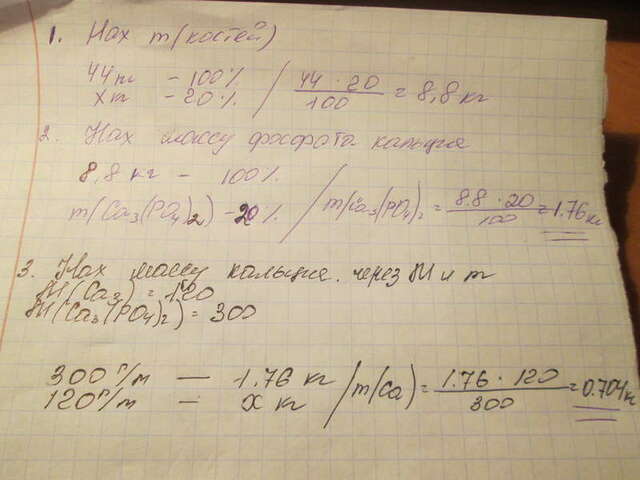 1. Нах m(костей)
44кг - 100% / 44 · 20 / 100 = 8,8 кг
xкг - 20%
2. Нах массу фосфата кальция
8,8 кг - 100%
m(Ca3(PO4)2) - 20% / m(Ca3(PO4)2 = 8.8 · 20 / 100 = 1.76 кг
3. Нах массу кальция. через M и m
M(Ca3) = 120
M(Ca3(PO4)2) = 300
300 г/м — 1.76 кг / m(Ca) = 1.76 · 120 / 300 = 0.704 кг
120 г/м — x кг